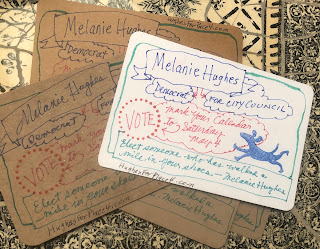 HughesForPlace4.com
Melanie Hughes
Democrat
Melanie Hughes
Democrat
for City Council
mark Your Calendar
VOTE
to Saturday
May 4
Elect someone who has walked a
mile in your shoes. —Melanie Hughes
HughesForPlace4.com
Melanie Hughes
Democrat
VOTE
mark
Elect someone
mile in your shoes
Melanie Hughes
HughesForPlace4.com